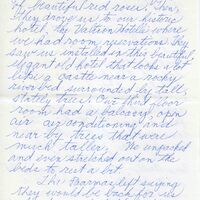 of beautiful red roses. Then,
They drove us to our historic
hotel, the Watson Hotel where
we had room reservations. They
saw us installed in this beautiful
elegant old hotel that looks a bit
like a castle near a rocky
river bed surrounded by tall,
stately trees. Our third floor
room had a balcony, open
air air conditioning and
near by trees that were
much taller. We unpacked
and even stretched out on the
beds to rest a bit.
The left saying
they would be back for us